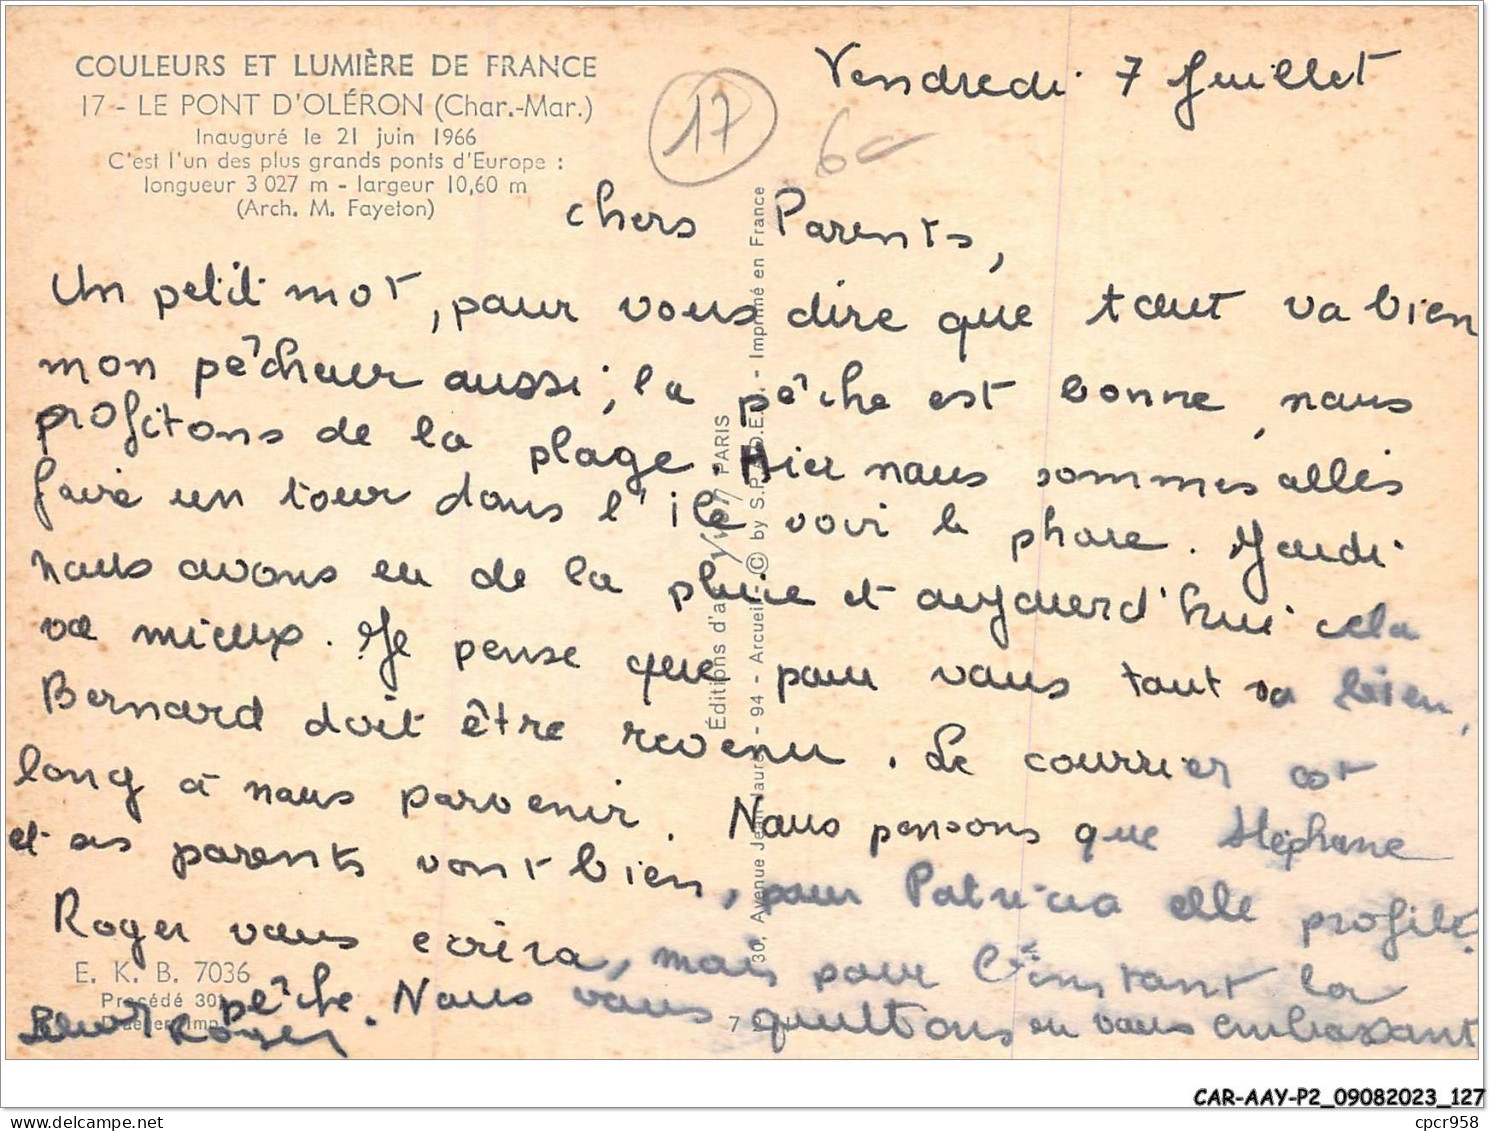 COULEURS ET LUMIÈRE DE FRANCE
17 - LE PONT D'OLÉRON (Char.-Mar.)
Inauguré le 21 juin 1966
C'est l'un des plus grands ponts d'Europe :
longueur 3 027 m - largeur 10,60 m
(Arch. M. Fayeton)
17
Vendredi 7 Juillet
Chers Parents,
Un petit mot, pour vous dire que tout va bien
mon pêcheur aussi ; la pêche est bonne, nous
profitons de la plage. Hier nous sommes allés
faire un tour dans l'île voir le phare. Jeudi
nous avons eu de la pluie et aujourd'hui cela
va mieux. Je pense que pour vous tout va bien,
Bernard doit être revenu. Le courrier est
long à nous parvenir. Nous pensons que Stéphane
et ses parents vont bien, pour Patricia elle profite.
Roger vous ecrira, mais pour l'instant la
pêche. Nous vous quittons en vous embrassant
Roger
Éditions d'art Yvon PARIS
30, Avenue Jean-Jaurès - 94 - Arcueil - © by S.P.A.D.E.M. - Imprimé en France
E. K. B. 7036
Procédé 301
Draeger Imp.
CAR-AAY-P2_09082023_127
cpcr958